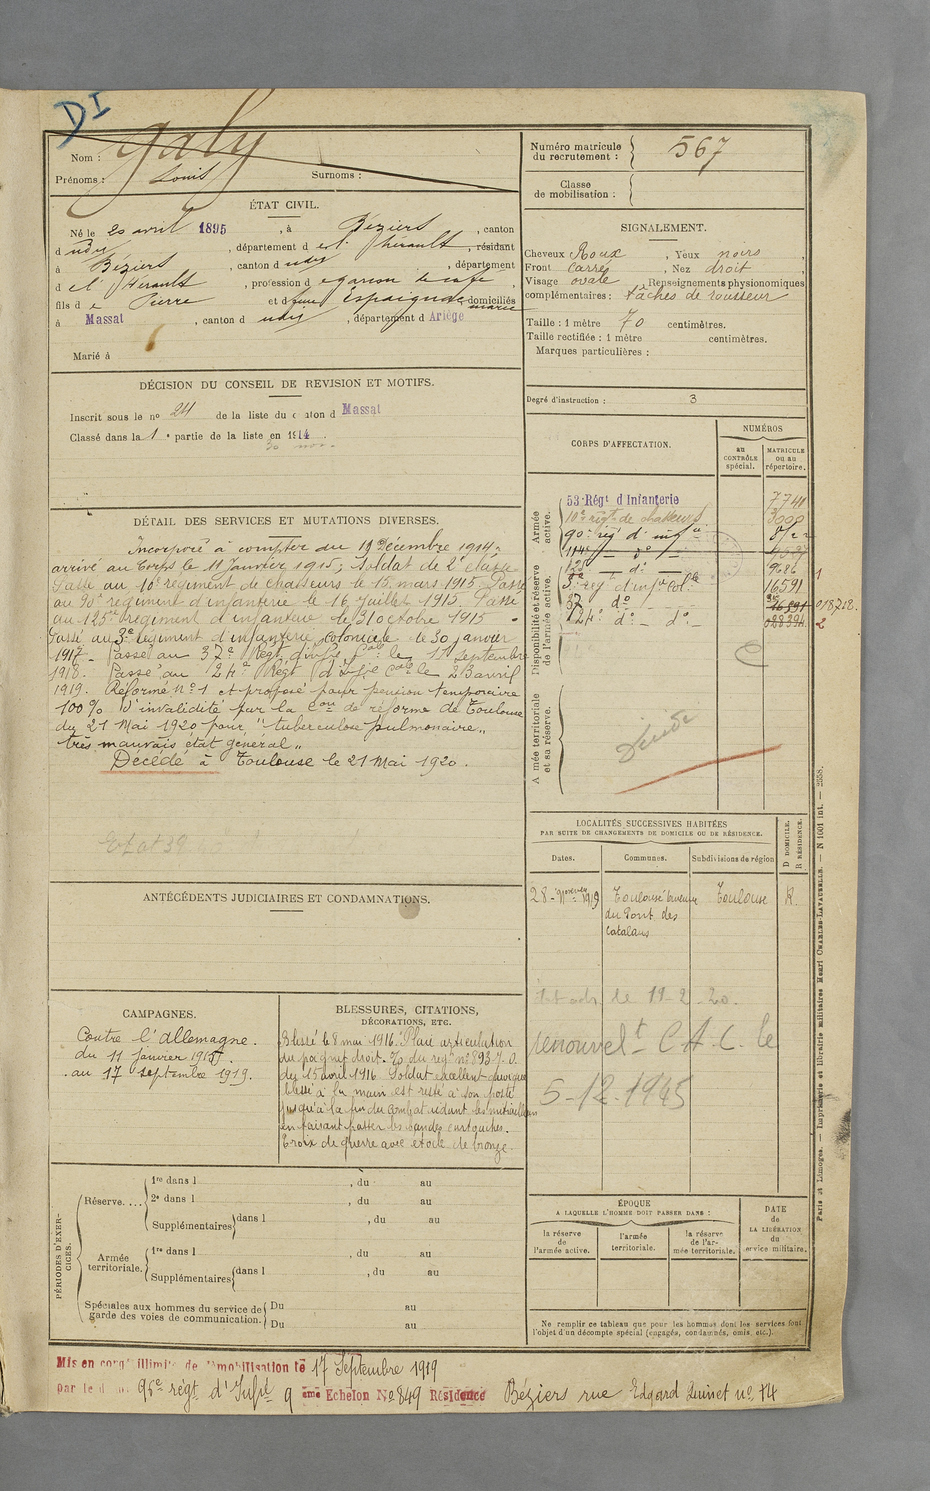 DI
Nom : Galy
Prénoms : Louis Surnoms :
ÉTAT CIVIL.
Né le 20 avril 1895, à Béziers, canton
d udit, département d e l'Hérault, résidant
à Béziers, canton d udit, département
d e l'Hérault, profession d e garçon de café,
fils d e Pierre et d domiciliés
à Massat, canton d udit, département d Ariège
Marié à
DÉCISION DU CONSEIL DE REVISION ET MOTIFS.
Inscrit sous le no 24 de la liste du canton d Massat
Classé dans la 1e partie de la liste en 1914.
DÉTAIL DES SERVICES ET MUTATIONS DIVERSES.
Incorporé à compter du 19 Décembre 1914,
arrivé au Corps le 11 janvier 1915, Soldat de 2e classe
Passé au 10e régiment de Chasseurs le 15 mars 1915. Passé
au 90e régiment d'infanterie le 16 Juillet 1915. Passé
au 125e régiment d'infanterie le 31 octobre 1915
Passé au 3e régiment d'infanterie coloniale le 30 janvier
1917. Passé au 37e Régt d'infie Cale le 17 septembre
1918. Passé au 24e Régt d'Infie Cale le 23 avril
1919. Réformé no 1 et proposé pour pension temporaire
100% d'invalidité par la Con de réforme de Toulouse
du 21 Mai 1920 pour "tuberculose pulmonaire,,
très mauvais état général,,
Décédé à Toulouse le 21 Mai 1920.
ANTÉCÉDENTS JUDICIAIRES ET CONDAMNATIONS.
CAMPAGNES.
Contre l'Allemagne.
du 11 janvier 1915.
au 17 septembre 1919.
BLESSURES, CITATIONS,
DÉCORATIONS, ETC.
Blessé le 8 mai 1916. Plaie articulation
du poignet droit. O/ du regt no 893.7.0.
du 15 avril 1916 Soldat excellent
blessé à la main est resté à son poste
jusqu'à la fin du combat aidant les mitrailleurs
en faisant passer les bandes cartouches.
Croix de guerre avec étoile de bronze.
PÉRIODES D'EXERCICES.
Réserve....
1re dans l , du au
2e dans l , du au
Supplémentaires dans l , du au
Armée territoriale.
1re dans l , du au
Supplémentaires dans l , du au
Spéciales aux hommes du service de garde des voies de communication.
Du au
Du au
Numéro matricule du recrutement : 567
Classe de mobilisation :
SIGNALEMENT.
Cheveux Roux, Yeux noirs,
Front carré, Nez droit,
Visage ovale, Renseignements physionomiques
complémentaires : tâches de rousseur
Taille : 1 mètre 70 centimètres.
Taille rectifiée : 1 mètre centimètres.
Marques particulières :
Degré d'instruction : 3
CORPS D'AFFECTATION.
NUMÉROS
au CONTRÔLE spécial.
MATRICULE ou au répertoire.
Armée active.
53e Régt d'Infanterie 7741
10e régt de chasseurs
90e rég d'infie
114e do
125e do 9686
3e regt d'infie Colle 16591
37 do 018712.
24e do do
1
2
Disponibilité et réserve de l'armée active.
Armée territoriale et sa réserve.
LOCALITÉS SUCCESSIVES HABITÉES
PAR SUITE DE CHANGEMENTS DE DOMICILE OU DE RÉSIDENCE.
Dates. Communes. Subdivisions de région D DOMICILE. R RÉSIDENCE.
28 Novembre 1919 Toulouse avenue du Pont des Catalans Toulouse R.
le 11-2-20.
renouvelt C.A.C. le
5-12-1945
ÉPOQUE
A LAQUELLE L'HOMME DOIT PASSER DANS :
la réserve de l'armée active.
l'armée territoriale.
la réserve de l'armée territoriale.
DATE de LA LIBÉRATION du service militaire.
Ne remplir ce tableau que pour les hommes dont les services font
l'objet d'un décompte spécial (engagés, condamnés, omis, etc.).
Mis en congé illimité de démobilisation le 17 Septembre 1919
par le dépôt 96e régt d'Infie 9 ème Echelon No 849 Résidence Béziers rue Edgard Quinet no 14
Paris et Limoges. — Imprimerie et librairie militaires Henri CHARLES-LAVAUZELLE. — N 1001 int. — 2658.